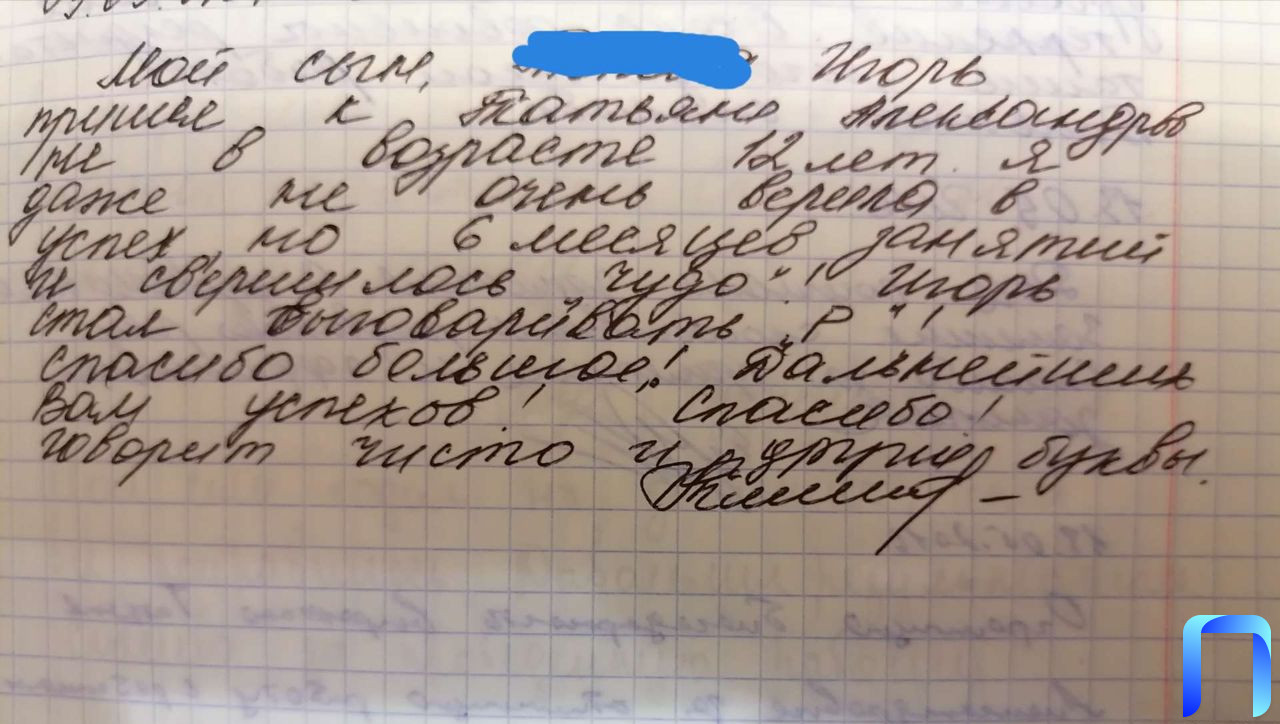 Мой сын, Игорь,
пришел к Татьяне Александров
не в возрасте 12 лет. Я
даже не очень верила в
успех, но 6 месяцев занятий
и свершилось "чудо"! Игорь
стал выговаривать "Р"!
Спасибо большое! Дальнейших
Вам успехов! Спасибо!
говорит чисто и другие буквы.